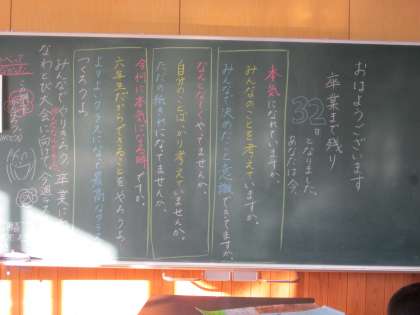 おはようございます
卒業まで残り
32日
となりました。
あなたは今、
本気になれていますか。
みんなのことを考えていますか。
みんなで決めたこと意識できてますか。
なんとなくやってませんか。
自分のことばっかり考えていませんか。
ただの紙きれになってませんか。
今何に本気になる時ですか。
六年生だからできることをやろうよ。
よりよいクラスになって最高なクラス
つくろうよ。
みんなでやりきろう。卒業に
なわとび大会に向けて、今週